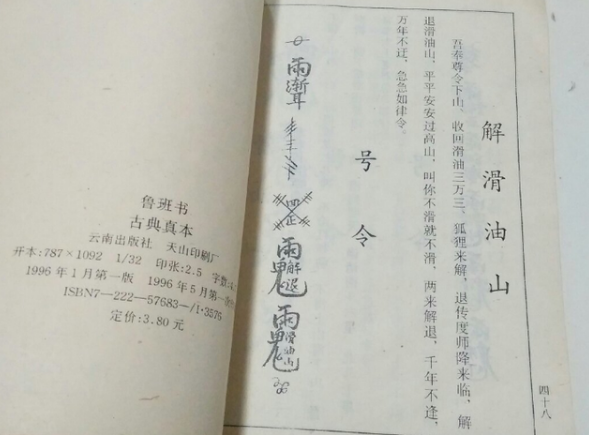 解滑油山
吾奉尊令下山，收回滑油三万三、狐狸来解，退传度师降来临，解
退滑油山，平平安安过高山，叫你不滑就不滑，两来解退，千年不逢，
万年不迁，急急如律令。
号令
四十八
鲁班书
古典真本
云南出版社 天山印刷厂
开本：787×1092 1/32 印张：2.5 字数：
1996年1月第一版 1996年5月第一
ISBN7—222—57683—/1·3576
定价：3.80元